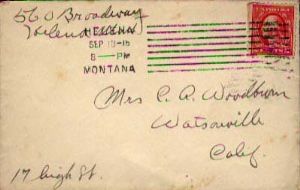 560 Broadway
Helena
HELENA
SEP 18
8 - PM
MONTANA
Mrs C. A. Woodburn
Watsonville
Calif.
17 high St.